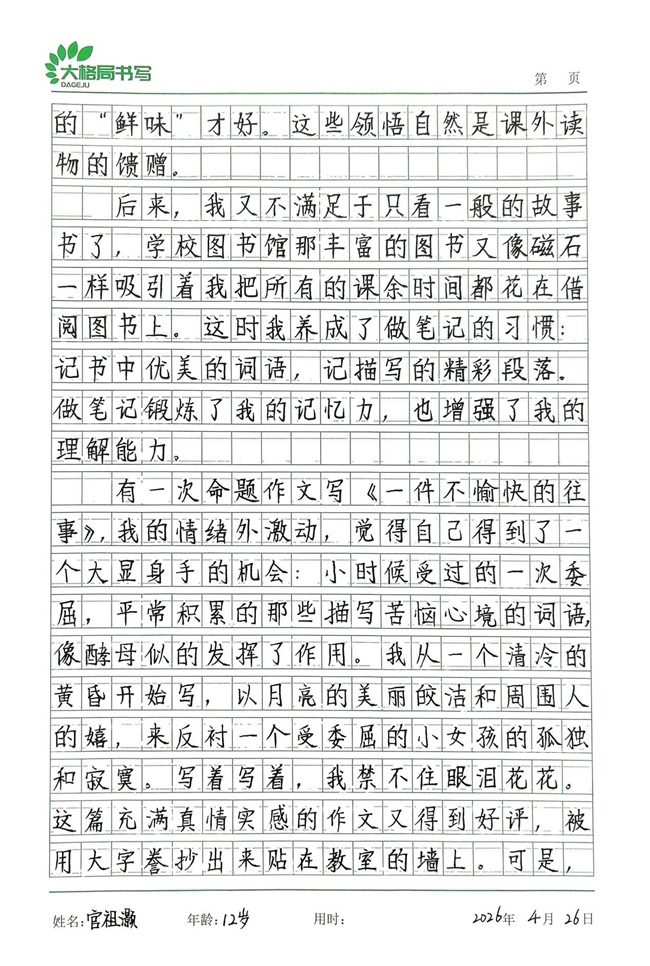 大格局书写
DAGEJU
第 页
的“鲜味”才好。这些领悟自然是课外读
物的馈赠。
后来，我又不满足于只看一般的故事
书了，学校图书馆那丰富的图书又像磁石
一样吸引着我把所有的课余时间都花在借
阅图书上。这时我养成了做笔记的习惯：
记书中优美的词语，记描写的精彩段落。
做笔记锻炼了我的记忆力，也增强了我的
理解能力。
有一次命题作文写《一件不愉快的往
事》，我的情绪外激动，觉得自己得到了一
个大显身手的机会：小时候受过的一次委
屈，平常积累的那些描写苦恼心境的词语，
像酵母似的发挥了作用。我从一个清冷的
黄昏开始写，以月亮的美丽皎洁和周围人
的嬉，来反衬一个受委屈的小女孩的孤独
和寂寞。写着写着，我禁不住眼泪花花。
这篇充满真情实感的作文又得到好评，被
用大字誊抄出来贴在教室的墙上。可是，
姓名：宫祖灏 年龄：12岁 用时： 2026年 4月 26日